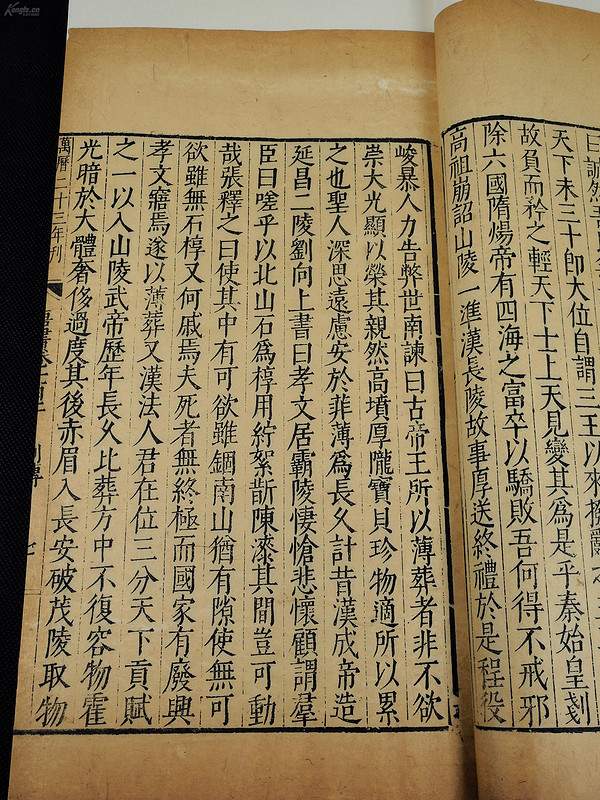 曰誠然吾
天下未三十卽大位自謂三王以來撥亂之
故負而矜之輕天下士上天見變其爲是乎秦始皇剗
除六國隋煬帝有四海之富卒以驕敗吾何得不戒邪
高祖崩詔山陵一準漢長陵故事厚送終禮於是程役
峻暴人力告弊世南諫曰古帝王所以薄葬者非不欲
崇大光顯以榮其親然高墳厚隴寶貝珍物適所以累
之也聖人深思遠慮安於菲薄爲長久計昔漢成帝造
延昌二陵劉向上書曰孝文居霸陵悽愴悲懷顧謂羣
臣曰嗟乎以北山石爲椁用紵絮斮陳漆其間豈可動
哉張釋之曰使其中有可欲雖錮南山猶有隙使無可
欲雖無石椁又何戚焉夫死者無終極而國家有廢興
孝文寤焉遂以薄葬又漢法人君在位三分天下貢賦
之一以入山陵武帝歷年長久比葬方中不復容物霍
光暗於大體奢侈過度其後赤眉入長安破茂陵取物
萬曆二十三年刊
Kongfz.cn